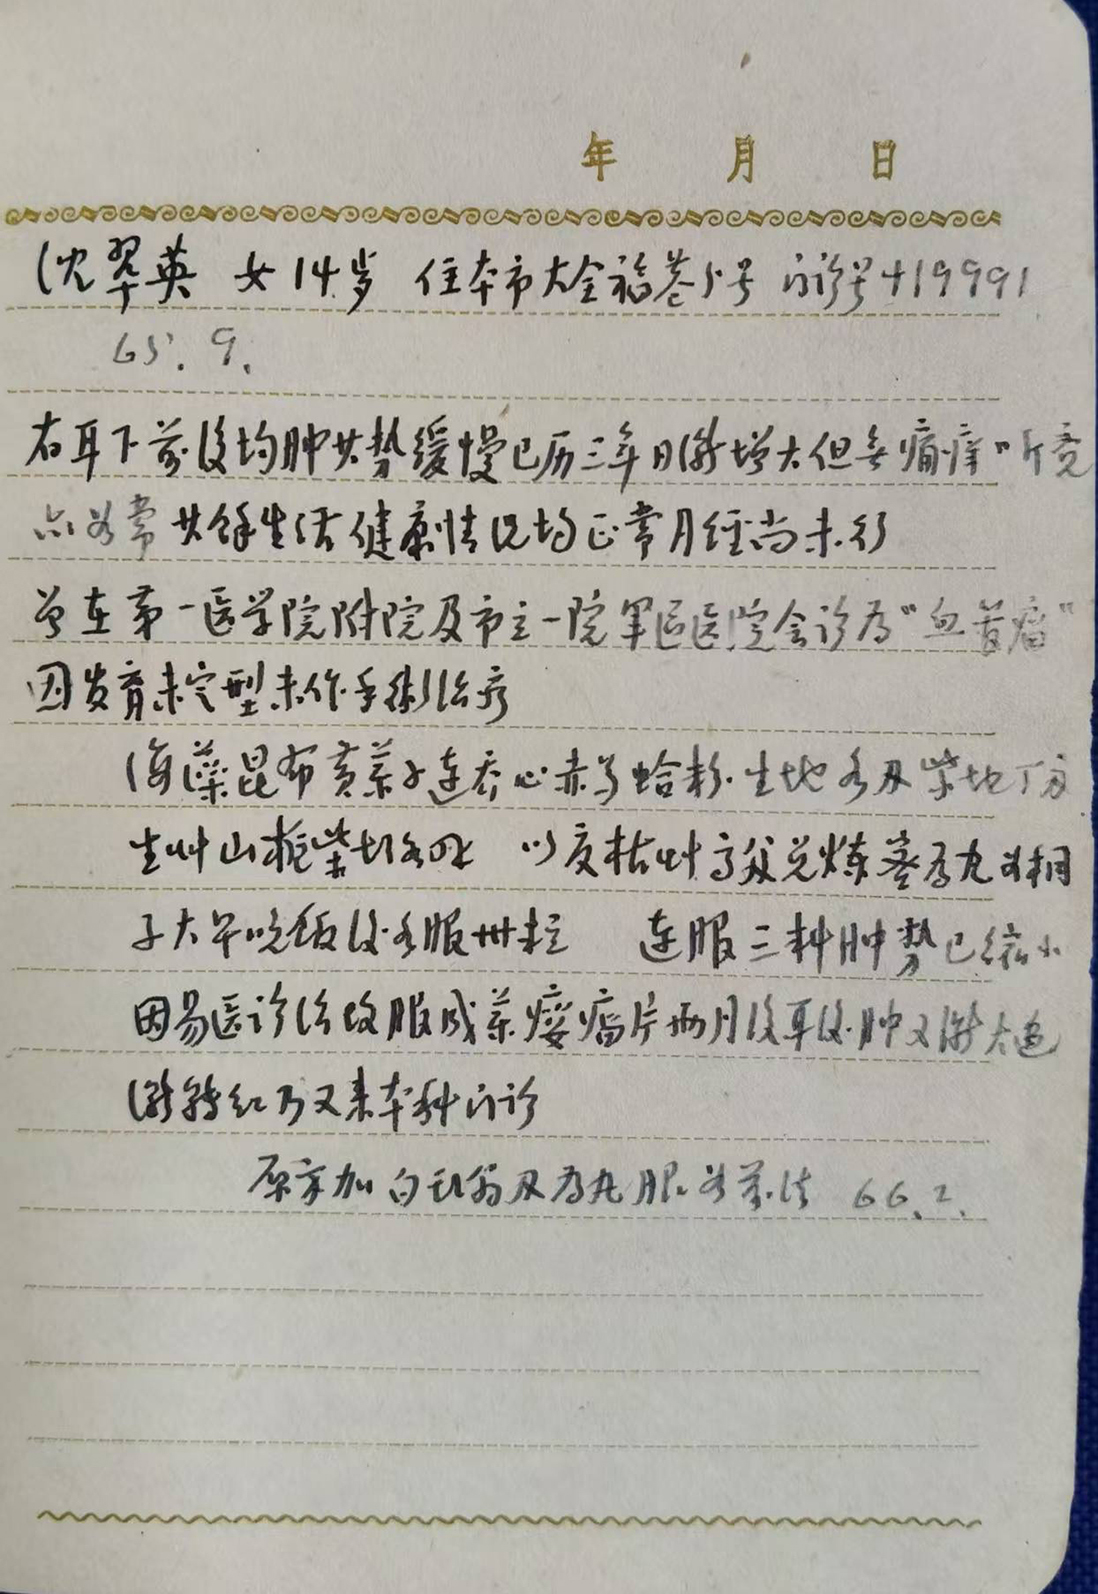 年 月 日
沈翠英 女 14岁 住本市大全福巷5号 门诊号419991
65. 9.
右耳下前後均肿其势缓慢已历三年日渐增大但无痛痒 听
亦如常 其馀生活健康情况均正常月经尚未行
曾在第一医学院附院及市立一院军区医院会诊为"血管瘤"
因发育未定型未作手术治疗
海藻昆布黄药子连乔心赤芍蛤粉 生地
生草山梔柴胡 以夏枯草膏炼蜜为丸如桐
子大早晚饭後各服卅粒 连服三料肿势已缩小
因易医诊治改服成药瘿瘤片两月後耳後肿又渐大色
渐转红乃又来本科门诊
原方加白 为丸服如前法 66.2.